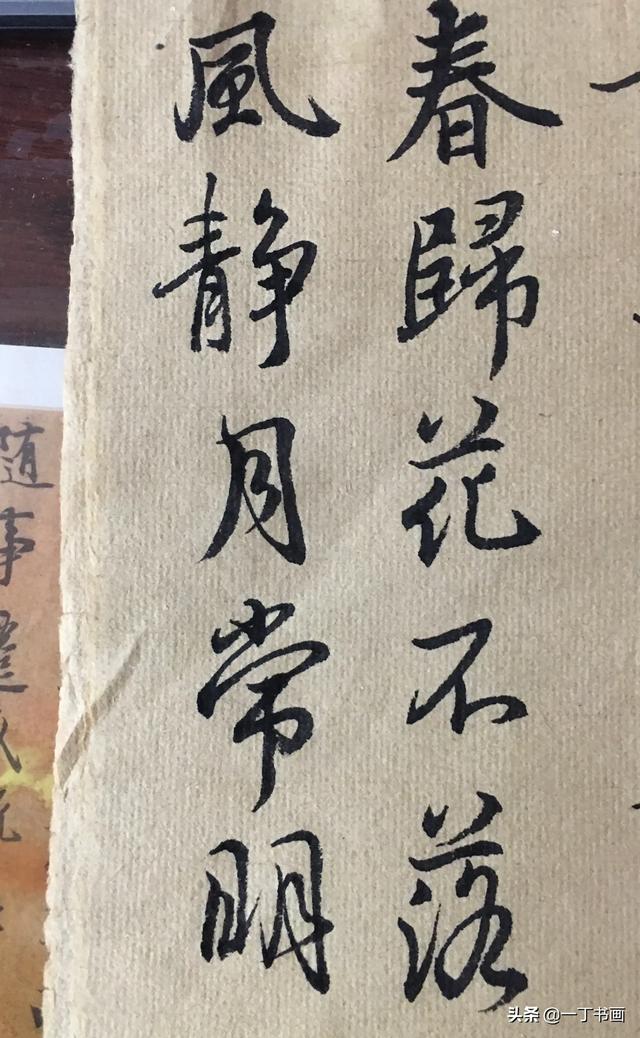 春歸花不落
風静月常明
随事遷
头条 @一丁书画